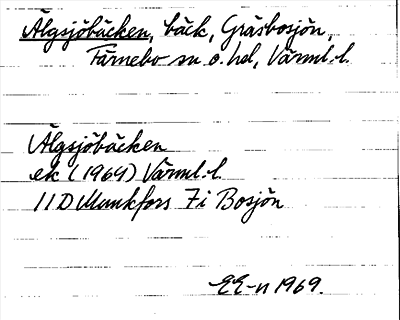 Älgsjöbäcken, bäck, Gräsbosjön,
Färnebo sn o. hd, Värml. l.
Älgsjöbäcken
ek (1964) Värml. l.
11D Munkfors 7i Bosjön
EE-n 1969.